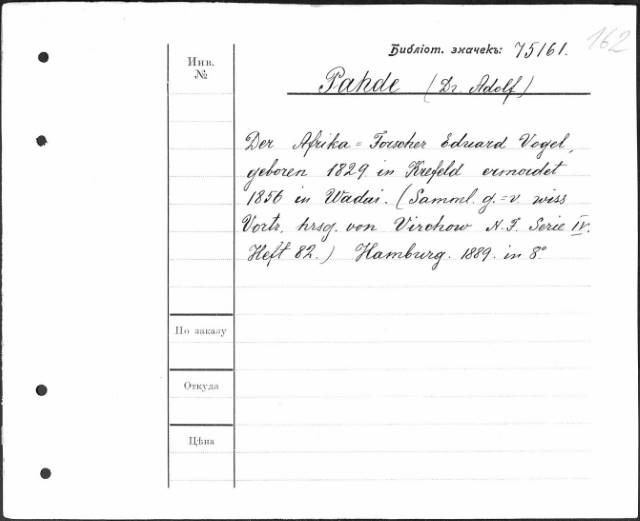 162
Библіот. значекъ: 75161.
Инв.
№
Pahde (Dr. Adolf)
Der Afrika=Forscher Eduard Vogel,
geboren 1829 in Krefeld ermordet
1856 in Wadai. (Samml. g.=v. wiss
Vortr. hrsg. von Virchow N.F. Serie IV.
Heft 82.) Hamburg. 1889. in 8°
По заказу
Откуда
Цѣна